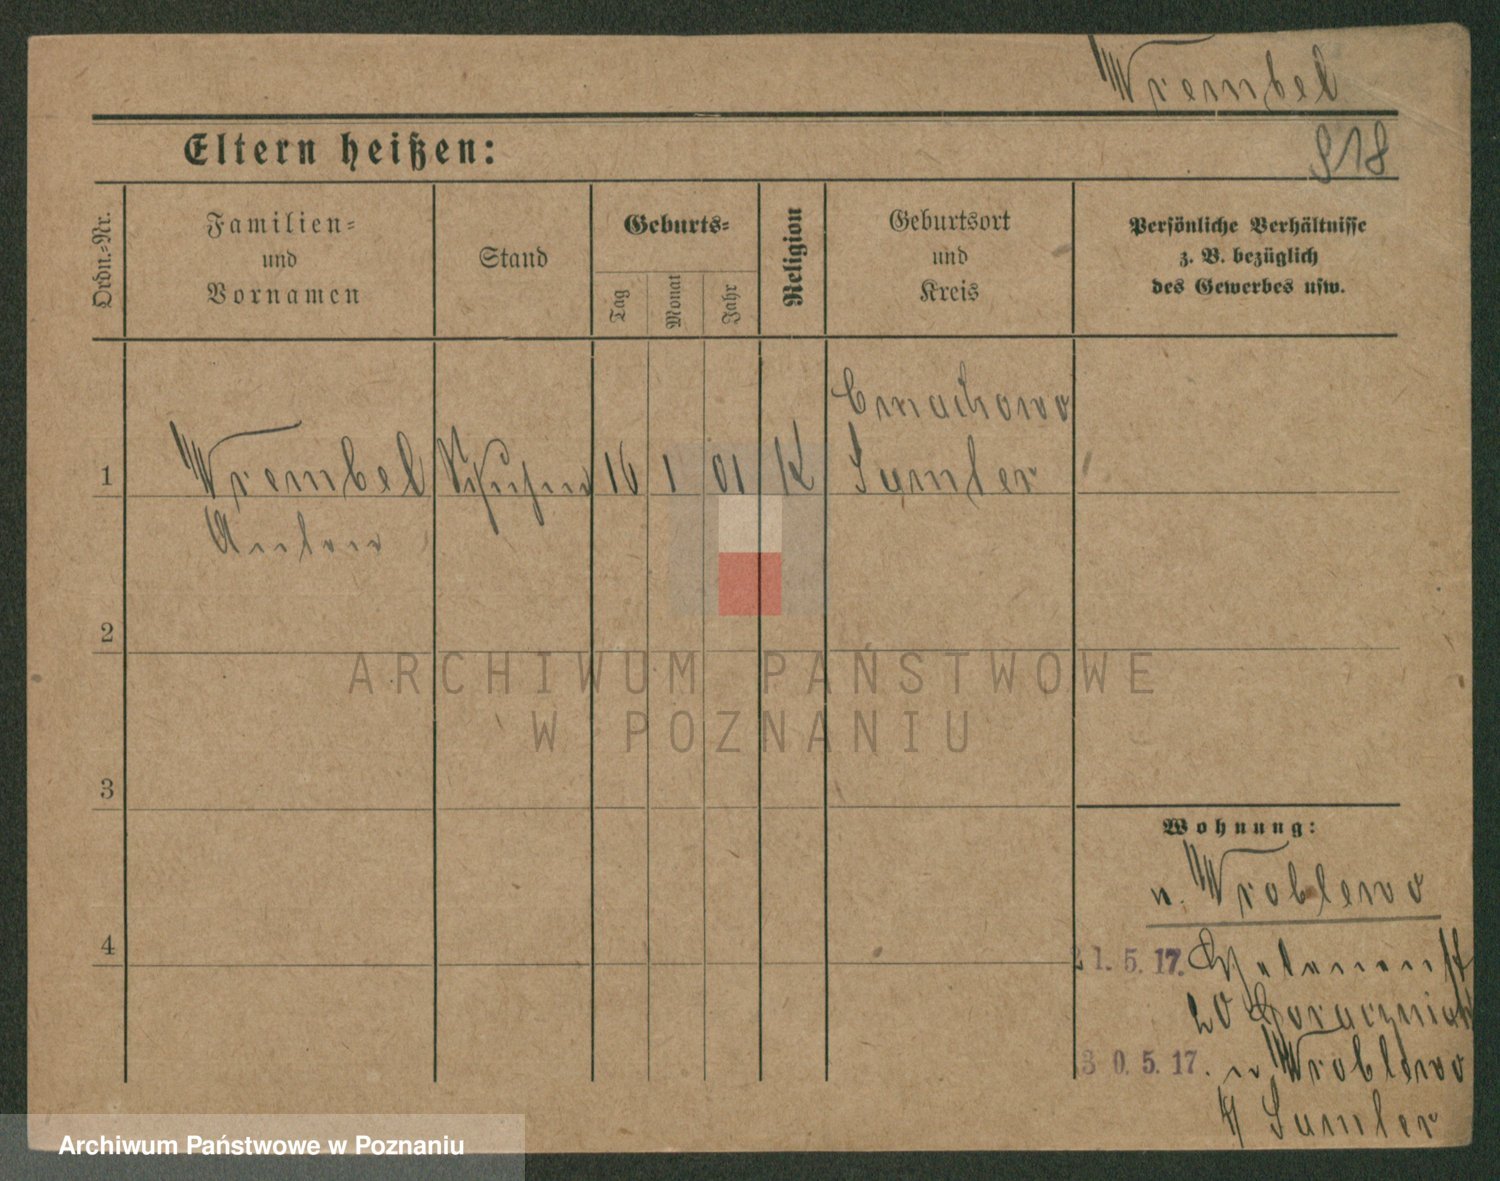 Wrembel
918
Eltern heißen:
Ordn.=Nr.
Familien=
und
Vornamen
Stand
Geburts=
Tag
Monat
Jahr
Religion
Geburtsort
und
Kreis
Persönliche Verhältnisse
z. B. bezüglich
des Gewerbes usw.
Cmachowo
1 Wrembel 16 1 01 K Samter
Anton
2
3
4
Wohnung:
n. Wroblewo
21. 5. 17.
20
30. 5. 17. n Wroblewo
Samter
ARCHIWUM PAŃSTWOWE
W POZNANIU
Archiwum Państwowe w Poznaniu